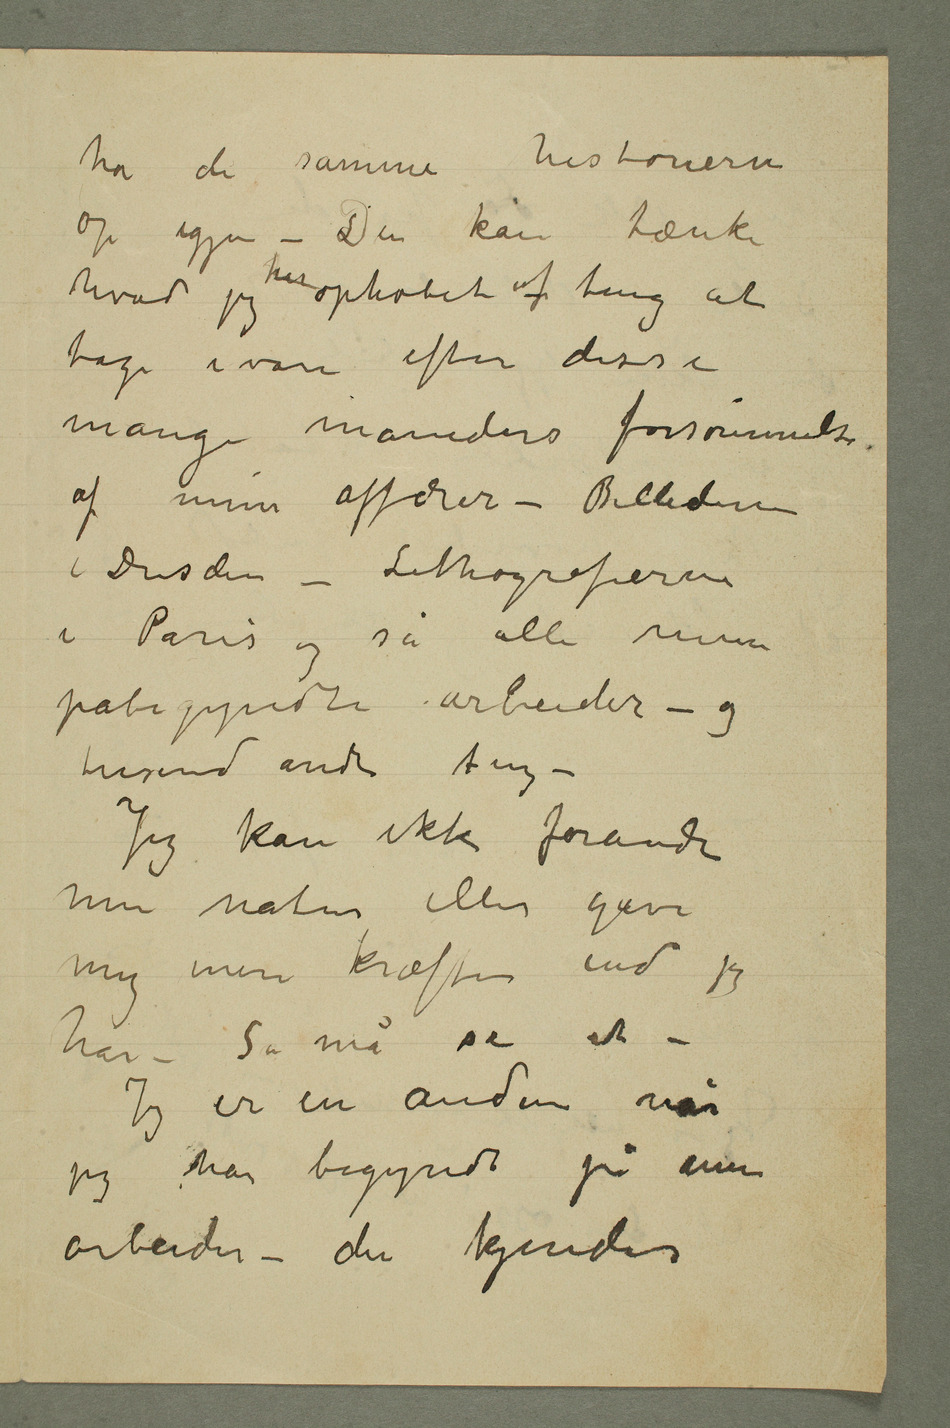 ha de samme historierne
op igjen – Du kan tænke
hvad jeg har ophobet af ting at
tage i vare efter disse
mange måneders forsømmelse
af mine affærer – Billederne
i Dresden – Lithografierne
i Paris og så alle mine
påbegyndte arbeider – og
tusend andre ting –
Jeg kan ikke forandre
min natur eller gøve
mig mere kræfter end jeg
har – Så må se at –
Jeg er en anden når
jeg har begyndt på mine
arbeider – du kjender